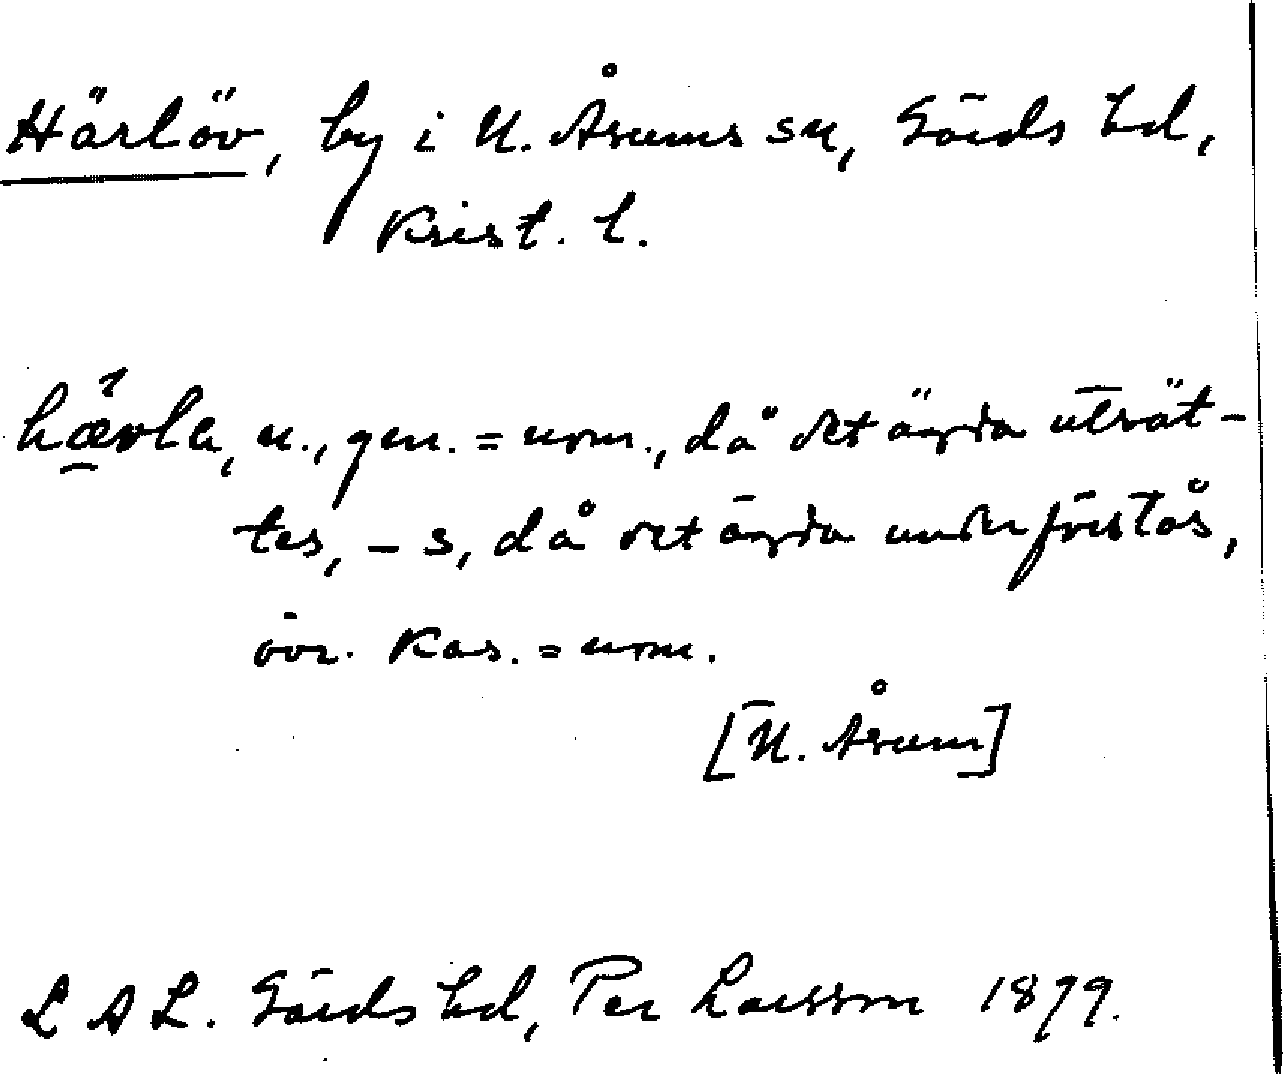 Härlöv, by i N. Åsums sn, Gärds hd,
Krist. l.
hærla, n., gen. = nom., då det ägda utsät-
tes, - s, då det ägda underförstås,
övr. kas. = nom.
[N. Åsum]
LAL. Gärds hd, Per Larsson 1879.